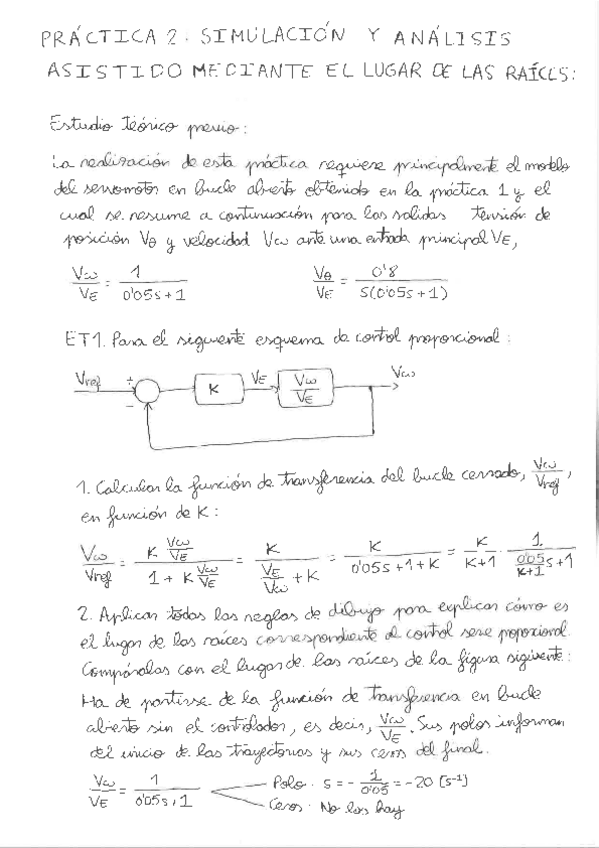 PRÁCTICA 2: SIMULACIÓN Y ANÁLISIS
ASISTIDO MEDIANTE EL LUGAR DE LAS RAÍCES:
Estudio teórico previo:
La realización de esta práctica requiere principalmente el modelo
del servomotor en bucle abierto obtenido en la práctica 1 y el
cual se resume a continuación para las salidas tensión de
posición Vθ y velocidad Vω ante una entrada principal VE,
Vω/VE = 1/(0'05s+1)    Vθ/VE = 0'8/(S(0'05s+1))
ET1. Para el siguiente esquema de control proporcional:
Vref + − K VE Vω/VE Vω
1. Calcular la función de transferencia del bucle cerrado, Vω/Vref,
en función de K:
Vω/Vref = (K Vω/VE)/(1 + K Vω/VE) = K/(VE/Vω + K) = K/(0'05s+1+K) = K/(K+1) · 1/((0'05/(K+1))s+1)
2. Aplicar todas las reglas de dibujo para explicar cómo es
el lugar de las raíces correspondiente al control sere poporional.
Compáralas con el lugar de las raíces de la figura siguiente:
Ha de partirse de la función de transferencia en bucle
abierto sin el controlador, es decir, Vω/VE. Sus polos informan
del inicio de las trayectorias y sus ceros del final.
Vω/VE = 1/(0'05s+1)    Polo: s = − 1/0'05 = −20 (s⁻¹)
Ceros: No los hay